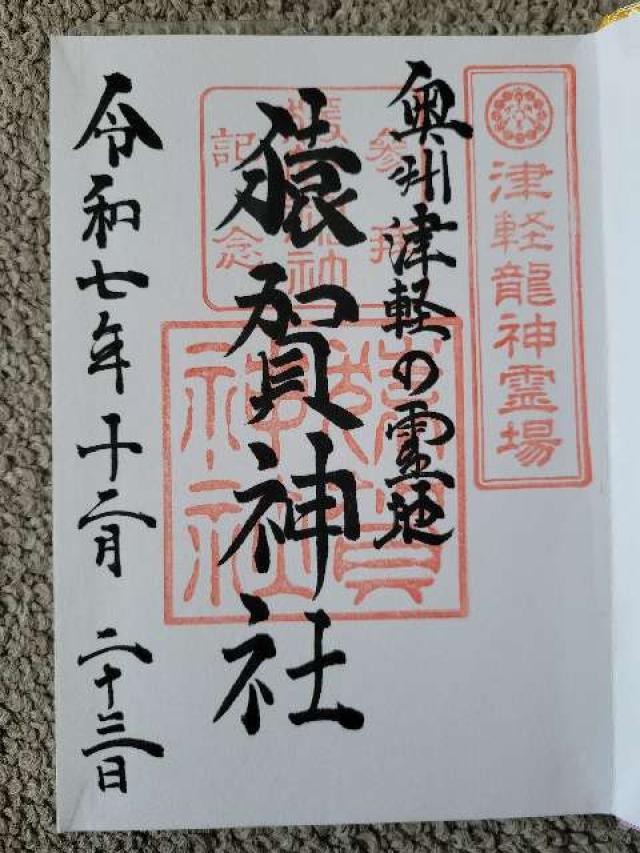 津軽龍神霊場
奥州津軽の霊地
参拝
記念
猿賀神社
猿賀神社
令和七年十二月二十三日